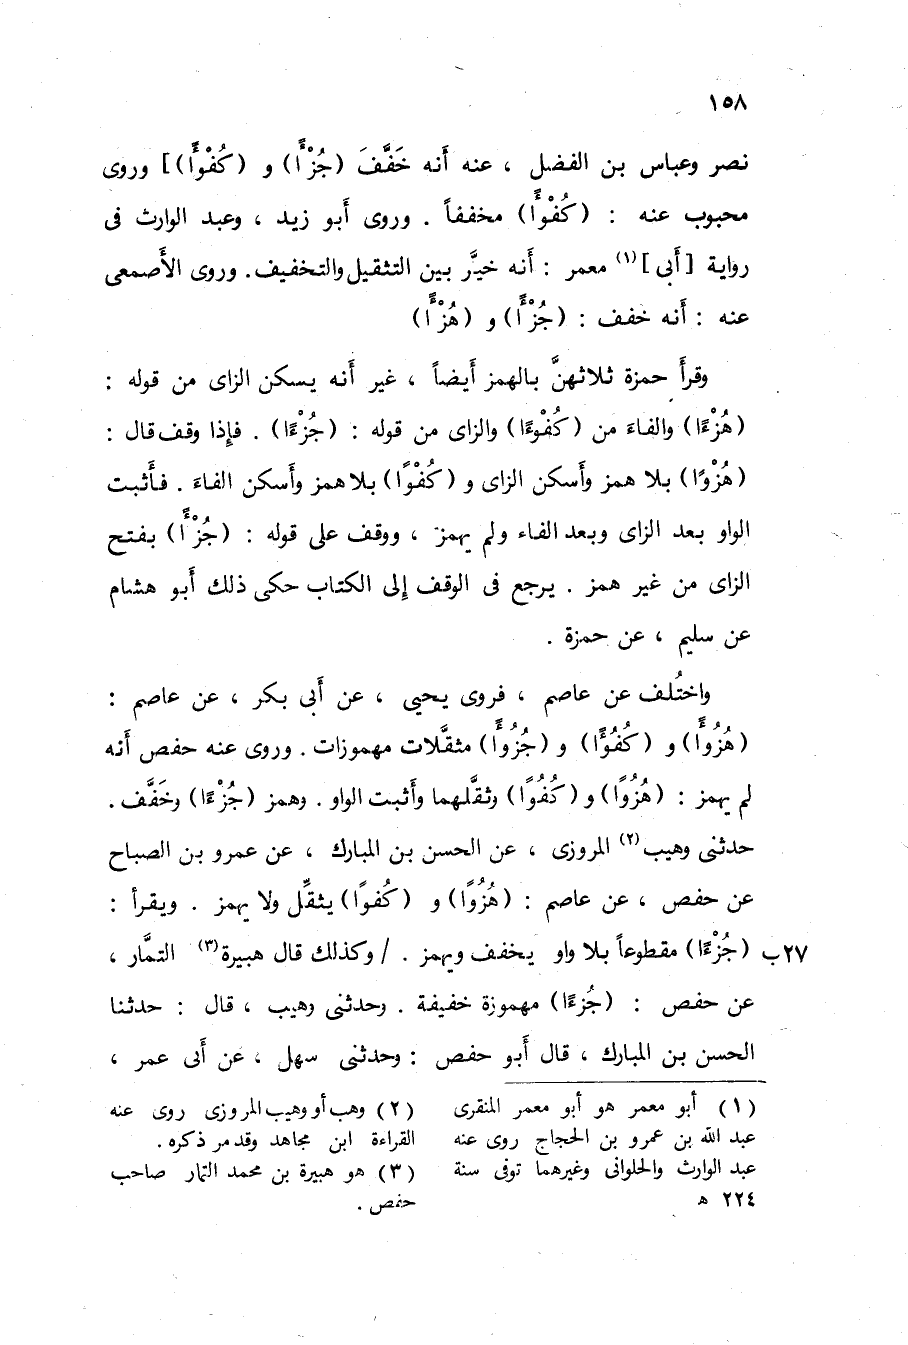 ١٥٨
نصر وعباس بن الفضل ، عنه أَنه خَفَّفَ (جُزْأً) و (كُفْوًا)] وروى
محبوب عنه : (كُفْوًا) مخففاً . وروى أَبو زيد ، وعبد الوارث فى
رواية [أَبى](١) معمر : أَنه خيَّر بين التثقيل والتخفيف. وروى الأَصمعى
عنه : أَنه خفف : (جُزْأً) و (هُزْأً)
وقرأَ حمزة ثلاثهنَّ بالهمز أَيضاً ، غير أَنه يسكن الزاى من قوله :
(هُزْءًا) والفاءَ من (كُفْوءًا) والزاى من قوله : (جُزْءًا) . فإِذا وقف قال :
(هُزْوًا) بلا همز وأَسكن الزاى و (كُفْوًا) بلا همز وأَسكن الفاءَ . فأَثبت
الواو بعد الزاى وبعد الفاء ولم يهمز ، ووقف على قوله : (جُزْأً) بفتح
الزاى من غير همز . يرجع فى الوقف إِلى الكتاب حكى ذلك أَبو هشام
عن سليم ، عن حمزة .
واختُلف عن عاصم ، فروى يحيى ، عن أَبى بكر ، عن عاصم :
(هُزُوًا) و (كُفُؤًا) و (جُزُوًا) مثقَّلات مهموزات . وروى عنه حفص أَنه
لم يهمز : (هُزُوًا) و (كُفُوًا) وثقَّلهما وأَثبت الواو . وهمز (جُزْءًا) وخَفَّف .
حدثنى وهيب(٢) المروزى ، عن الحسن بن المبارك ، عن عمرو بن الصباح
عن حفص ، عن عاصم : (هُزُوًا) و (كُفوًا) يثقِّل ولا يهمز . ويقرأ :
٢٧ب (جُزْءًا) مقطوعاً بلا واو يخفف ويهمز . / وكذلك قال هبيرة(٣) التمَّار ،
عن حفص : (جُزءًا) مهموزة خفيفة . وحدثنى وهيب ، قال : حدثنا
الحسن بن المبارك ، قال أَبو حفص : وحدثنى سهل ، عن أَبى عمر ،
(١) أبو معمر هو أبو معمر المنقرى
عبد الله بن عمرو بن الحجاج روى عنه
عبد الوارث والحلوانى وغيرهما توفى سنة
٢٢٤ ه
(٢) وهب أو وهيب المروزى روى عنه
القراءة ابن مجاهد وقد مر ذكره .
(٣) هو هبيرة بن محمد التمار صاحب
حفص .